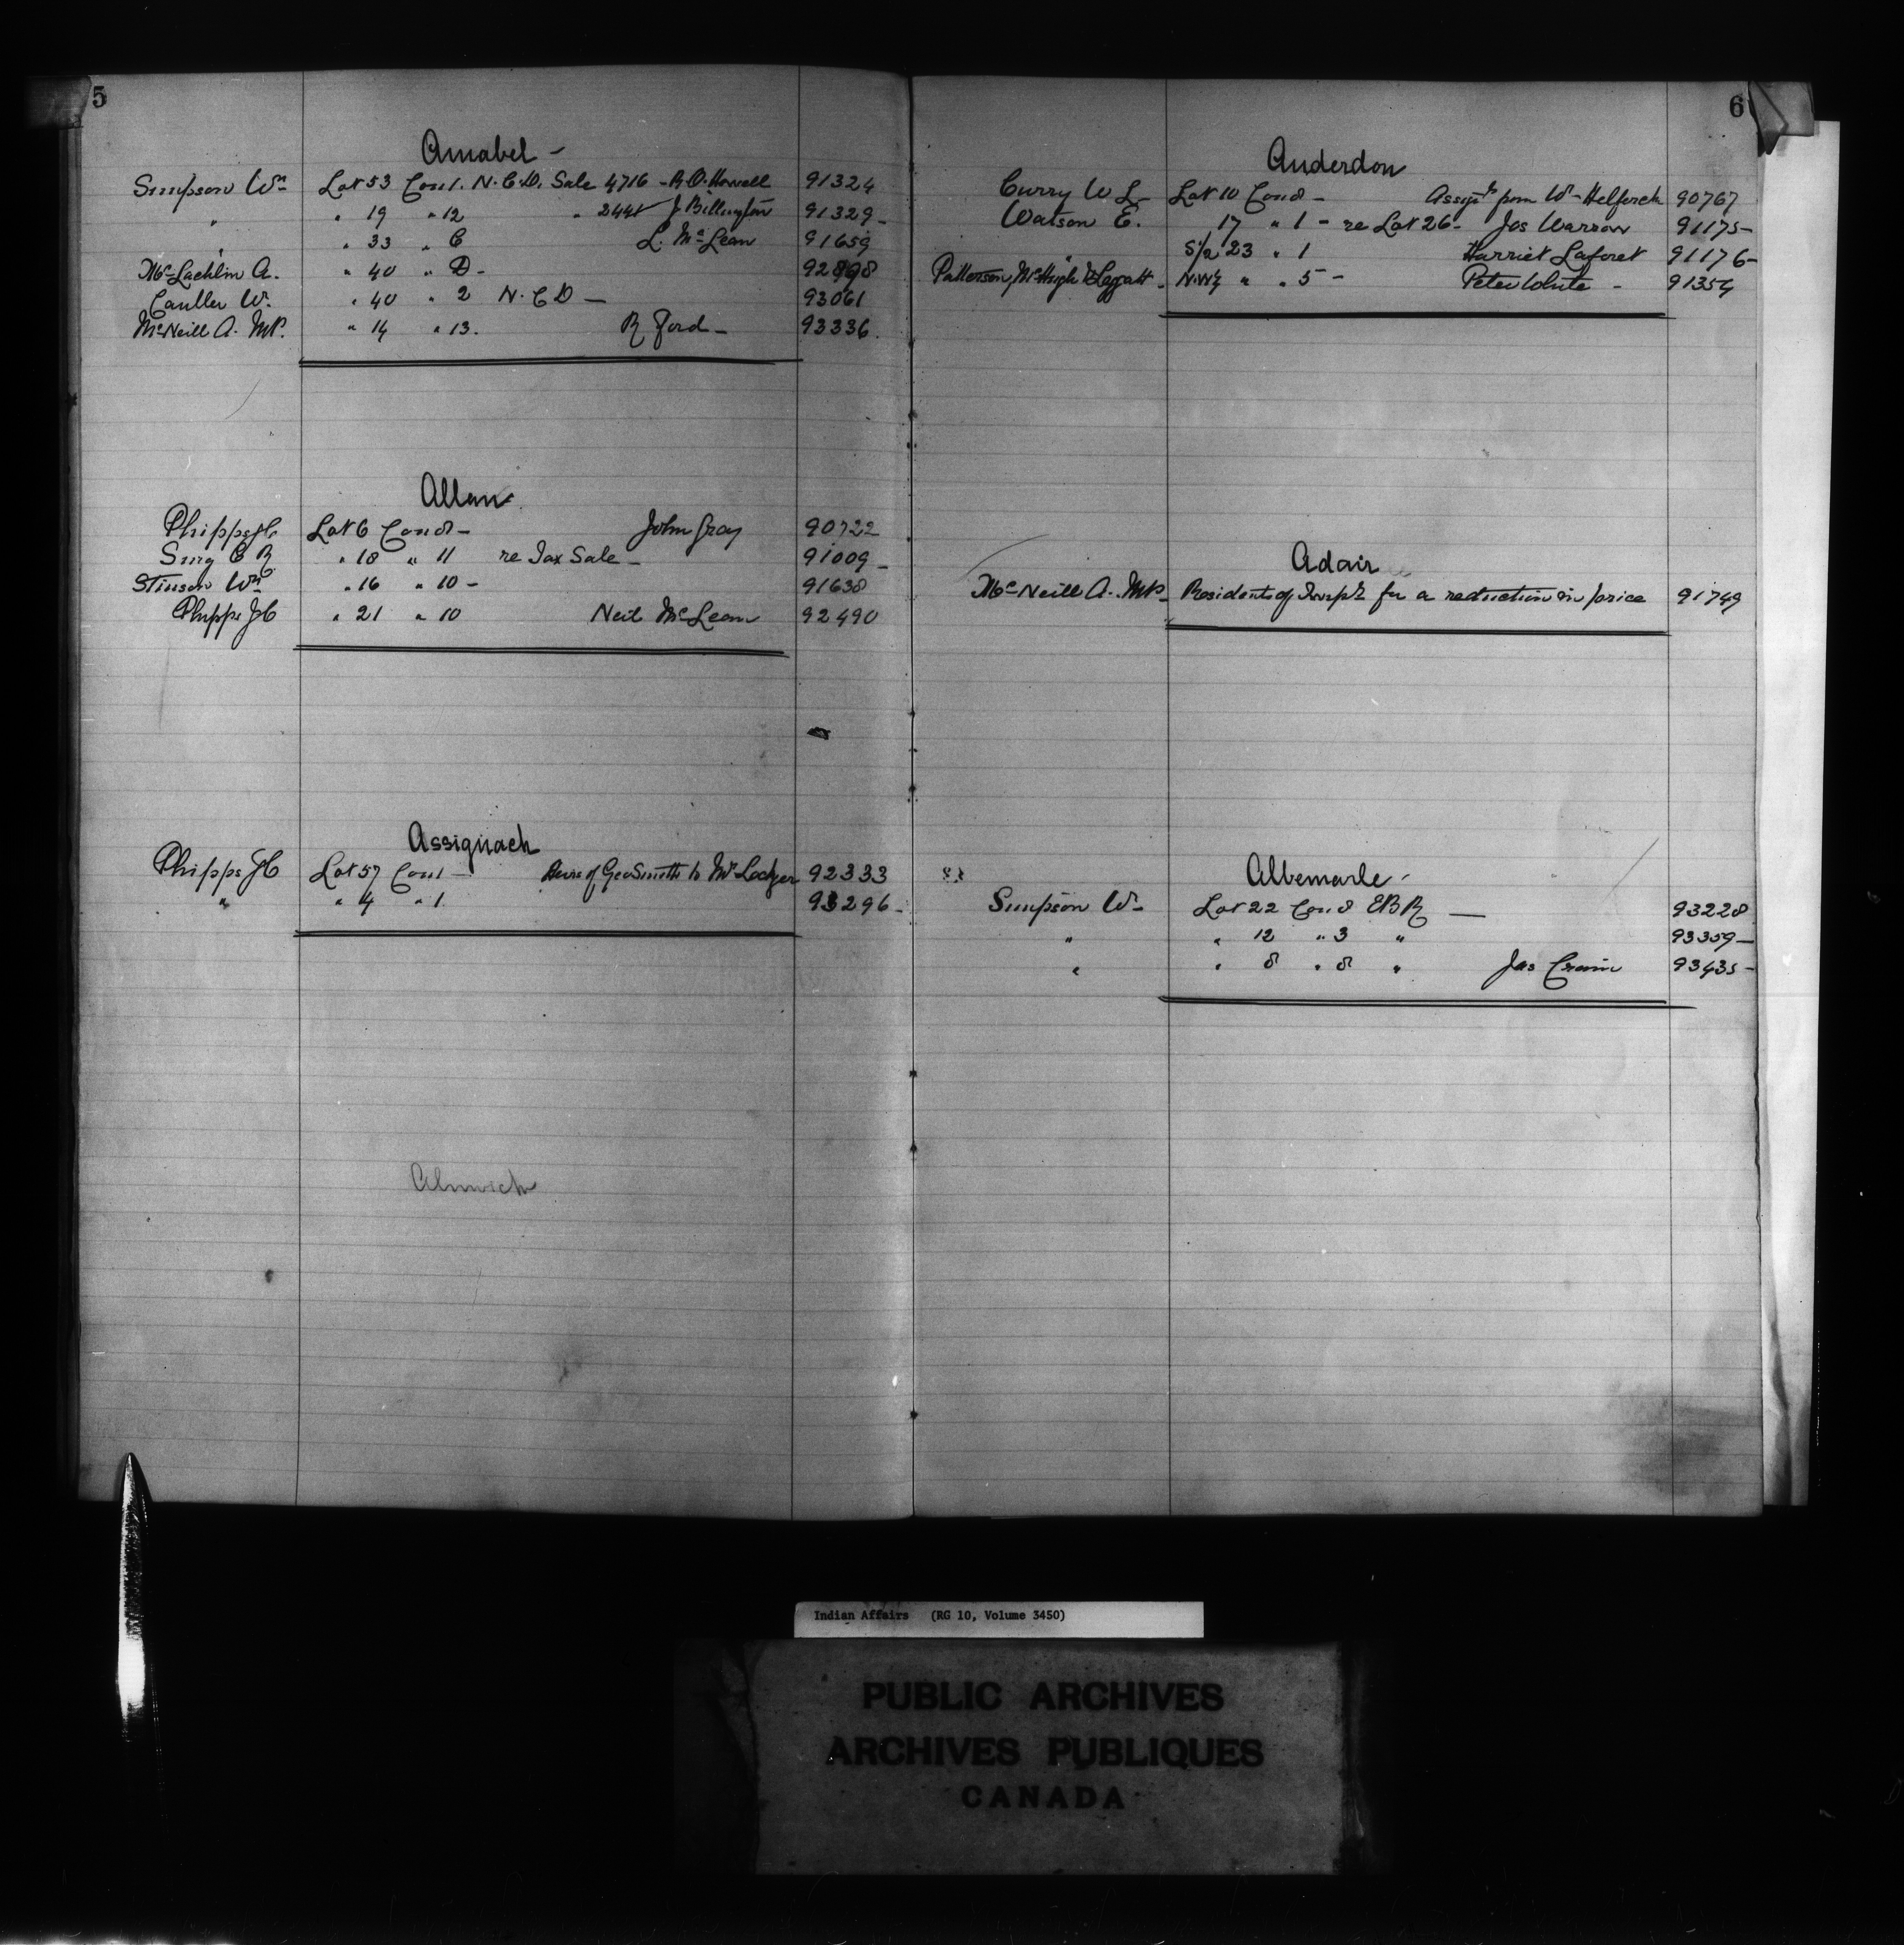 5
Amabel -
Simpson Wm Lot 53 Con 1. N.C.D. Sale 4716 - R.O. Howell 91324
" " 19 " 12 " 2441 J Billington 91329 -
" " 33 " C L. McLean 91659
McLachlin A. " 40 " D - 92898
W. " 40 " 2 N.C D - 93061
McNeill A. MP. " 14 " 13. R Ford - 93336.
Allan
Phipps JC Lot 6 Con 8 - John Gray 90722
Sing C R " 18 " 11 re Tax Sale - 91009 -
Stinson Wm " 16 " 10 - 91638
Phipps JC " 21 " 10 Neil McLean 92490
Assiginack
Phipps JC Lot 57 Con 1 - Heirs of Geo Smith to 92333
" " 4 " 1 93296 -
Alnwick
6
Anderdon
Curry W L - Lot 10 Con 8 - Assigt from Wm 90767
Watson E. 17 " 1 - re Lot 26 - Jos Warrow 91175 -
" S½ 23 " 1 Harriet Laforet 91176 -
Patterson, McHugh & Leggatt - N.W¼ " " 5 - Peter White - 91354
Adair
McNeill A. MP - Residents of Townp for a reduction in price 91749
Albemarle -
Simpson Wm Lot 22 Con 8 EBR - 93228
" " 12 " 3 " 93359 -
" " 8 " 8 " Jas 93435 -
Indian Affairs (RG 10, Volume 3450)
PUBLIC ARCHIVES
ARCHIVES PUBLIQUES
CANADA